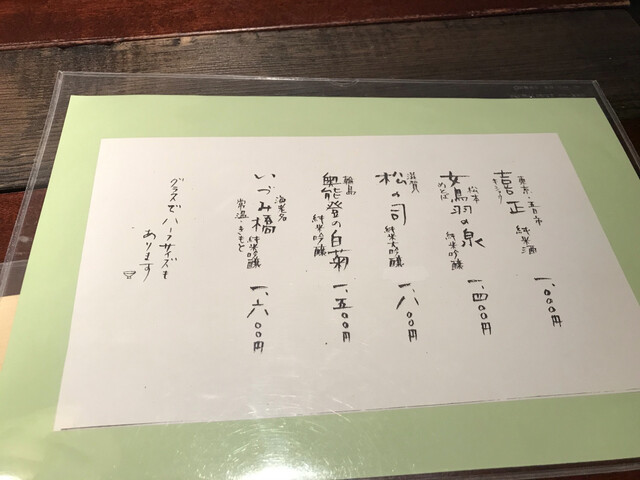 東京・青市
喜正 純米酒 一、〇〇〇円
きしょう
松本
女鳥羽の泉 純米吟醸 一、四〇〇円
めとば
滋賀
松の司 純米大吟醸 一、八〇〇円
輪島
奥能登の白菊 純米吟醸 一、五〇〇円
海老名
いづみ橋 純米吟醸 一、六〇〇円
常温・きもと
グラスで、ハーフサイズも
あります